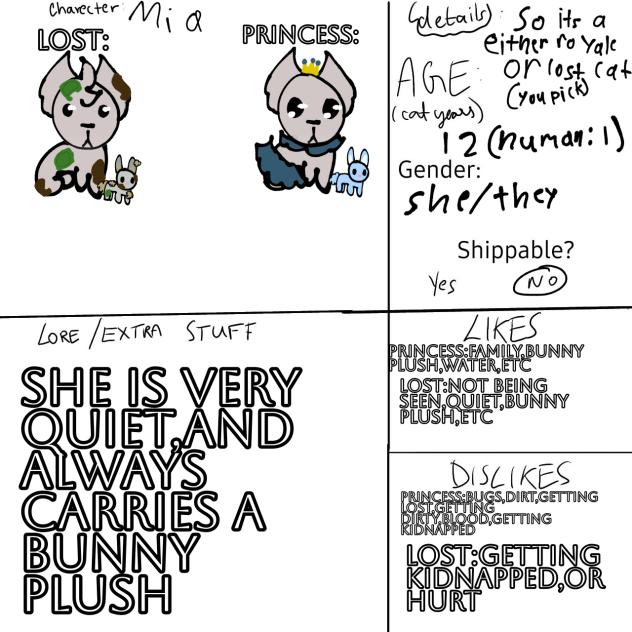 Charecter: Mia
LOST:
PRINCESS:
(details): So its a
either royale
or lost cat
(you pick)
AGE:
(cat years)
12 (human: 1)
Gender:
she/they
Shippable?
Yes NO
LORE/EXTRA STUFF
SHE IS VERY
QUIET,AND
ALWAYS
CARRIES A
BUNNY
PLUSH
LIKES
PRINCESS:FAMILY,BUNNY
PLUSH,WATER,ETC
LOST:NOT BEING
SEEN,QUIET,BUNNY
PLUSH,ETC
DISLIKES
PRINCESS:BUGS,DIRT,GETTING
LOST,GETTING
DIRTY,BLOOD,GETTING
KIDNAPPED
LOST:GETTING
KIDNAPPED,OR
HURT